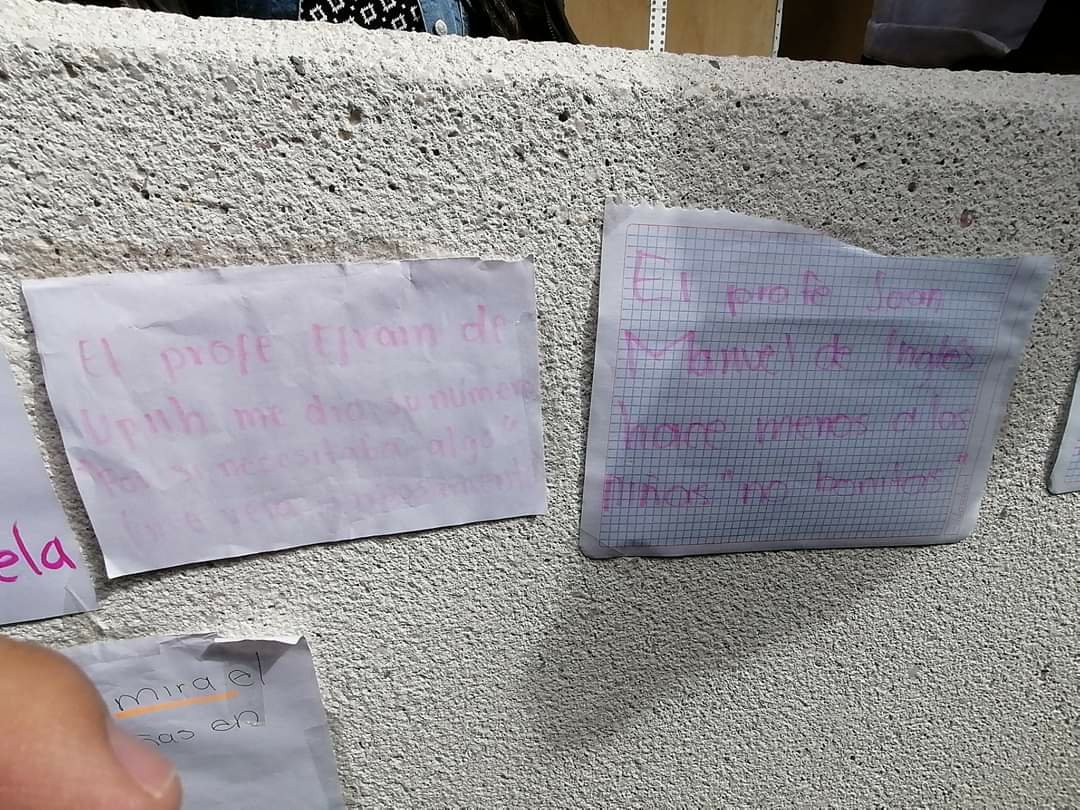 El profe Efrain de
Upnh me dio su número
"Por si necesitaba algo"
El profe Joan
Manuel de Inglés
hace menos a las
niñas "no bonitas"
ela
mira el
en